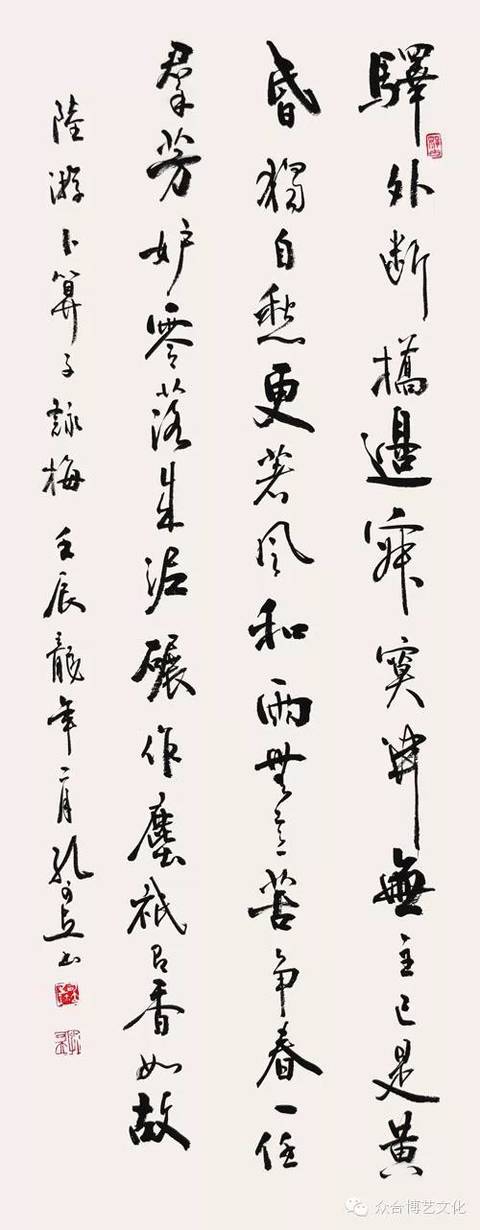 驛外斷橋邊寂寞開無主已是黄
昏獨自愁更著風和雨無意苦争春一任
羣芳妒零落成泥碾作塵祇有香如故
陸游卜算子詠梅壬辰龍年二月孔可立书
众合博艺文化